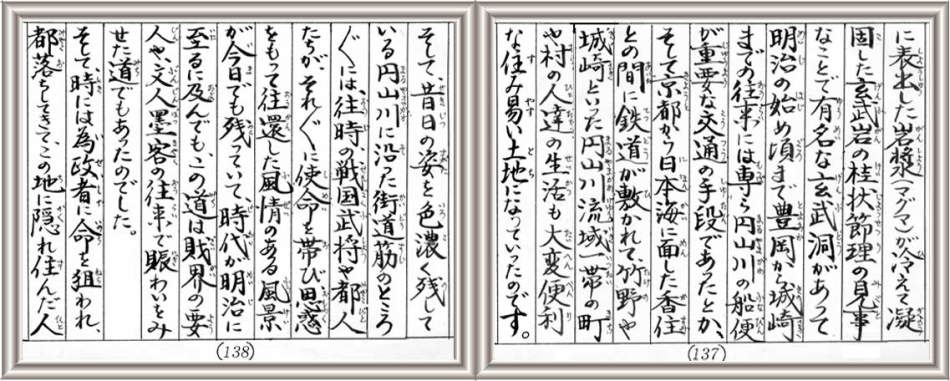 に表出した岩漿(マグマ)が冷えて凝
固した玄武岩の柱状節理の見事
なことで有名な玄武洞があって
明治の始め頃まで豊岡から城崎
までの往来には専ら円山川の船便
が重要な交通の手段であったとか、
そして京都から日本海に面した香住
との間に鉄道が敷かれて、竹野や
城崎といった円山川流域一帯の町
や村の人達の生活も大変便利
な住み易い土地になっていったのです。
(137)
そして、昔日の姿を色濃く残して
いる円山川に沿った街道筋のところ
ぐには、往時の戦国武将や都人
たちが、それぐに使命を帯び思惑
をもって往還した風情のある風景
が今日でも残っていて、時代が明治に
至るに及んでも、この道は財界の要
人や、文人墨客の往来で賑わいをみ
せた道でもあったのでした。
そして時には為政者に命を狙われ、
都落ちしてきて、この地に隠れ住んだ人
(138)